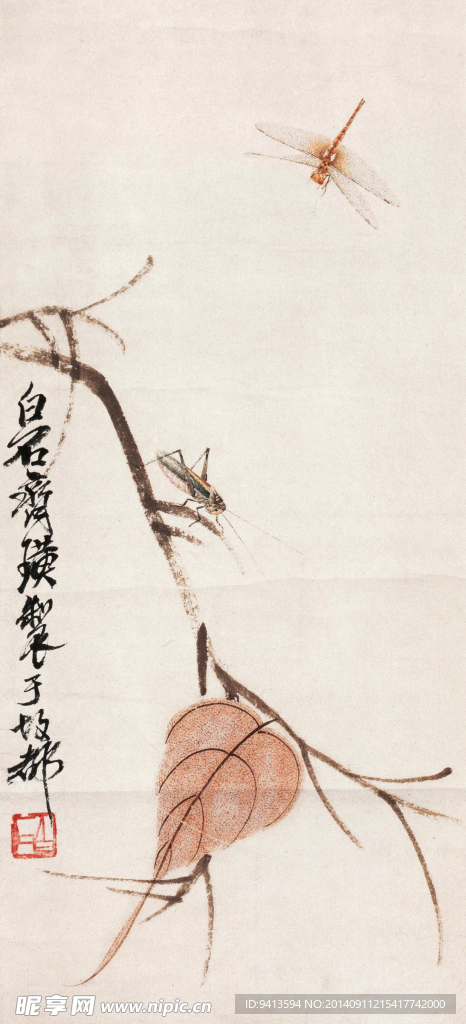 白石齊璜製于故都
白石
昵享网 www.nipic.cn
ID:9413594 NO:20140911215417742000